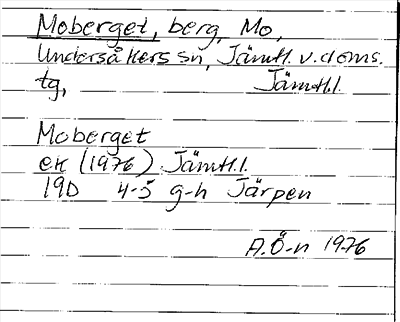 Moberget, berg, Mo,
Undersåkers sn, Jämtl. v. doms.
tg, Jämtl. l.
Moberget
ek (1976) Jämtl. l.
19D 4-5 g-h Järpen
A.Ö-n 1976